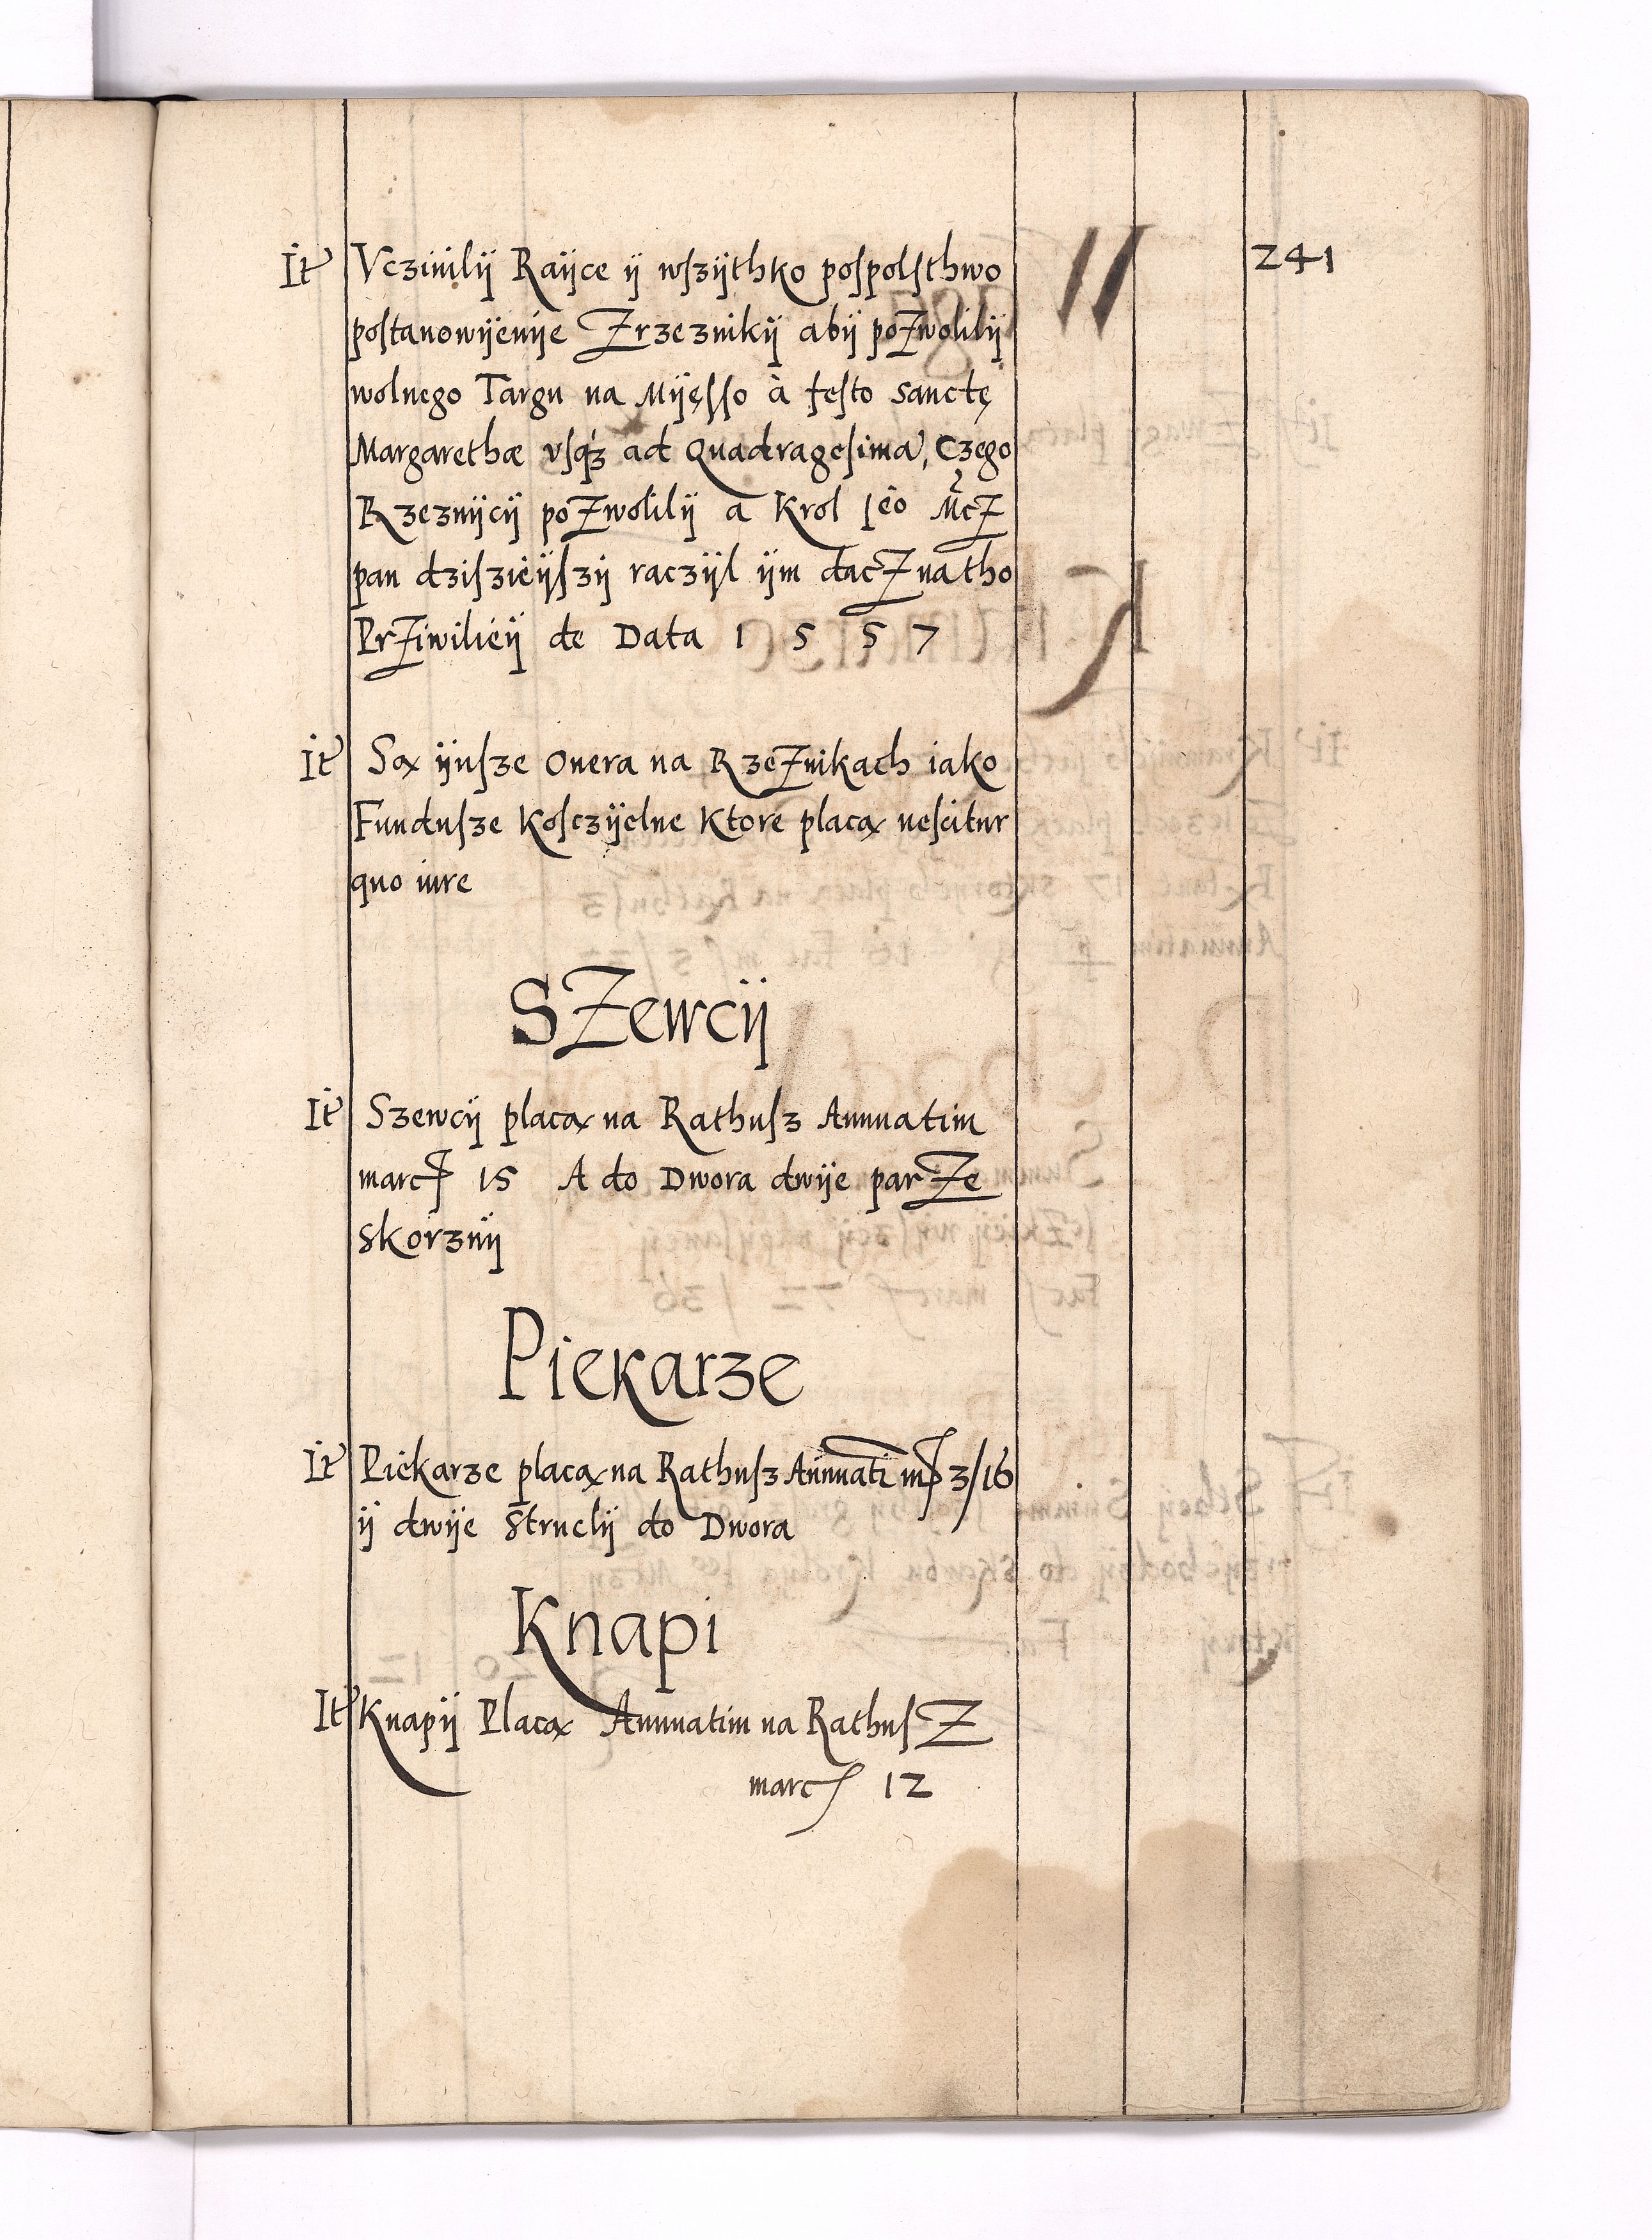 241
It Vczinilij Raijce ij wszijthko pospolsthwo
postanowijenije Zrzeznikij abij pozwolilij
wolnego Targu na Mijęsso à festo sanctę
Margarethæ vsqꝫ ad Quadragesimā, Czego
Rzeznijcij pozwolilij a Krol Jeo Mcz
pan dziszieijszij raczijl ijm dacz natho
Prziwilieij de Data 1557
It Są ijnsze Onera na Rzeznikach iako
Fundusze Kosczijelne Ktore placą nescitur
quo iure
Szewcij
It Szewcij placą na Rathusz Annuatim
marcʃ 15 A do Dwora dwije parze
skorznij
Piekarze
It Piekarze placą na Rathusz Annuatī mʃ 3/16
ij dwije Struclij do Dwora
Knapi
It Knapij Placą Annuatim na Rathusz
marcʃ 12